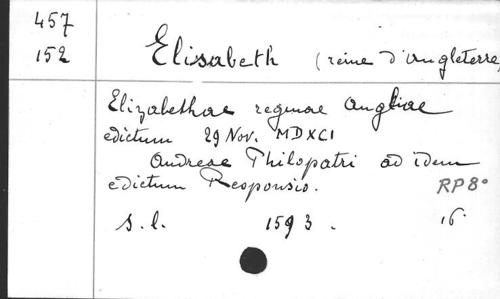 457
152
Elisabeth (reine d'Angleterre)
Elizabethae reginae Angliae
edictum 29 Nov. MDXCI
Andreae Philopatri ad idem
edictum Responsio.
RP 8°
s.l. 1593. 16°